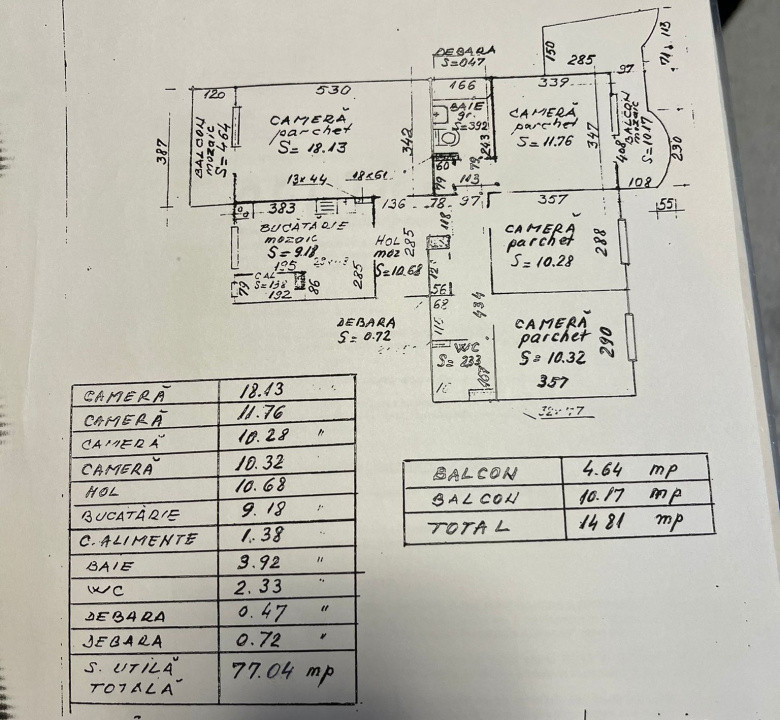 DEBARA
S=047
120
530
166
339
150
285
97
71
113
387
BALCON
mozaic
S=4.64
CAMERĂ
parchet
S=18.13
342
BAIE
gr.
S=392
243
CAMERĂ
parchet
S=11.76
347
408
BALCON
mozaic
S=10.17
230
60
79
79
113
13x44
18x61
383
136
78
97
357
108
55
BUCĂTĂRIE
mozaic
S=9.18
HOL
moz
S=10.68
285
118
CAMERĂ
parchet
S=10.28
288
195
CAL
S=138
79
192
86
285
56
68
DEBARA
S=0.72
434
115
WC
S=233
107
CAMERĂ
parchet
S=10.32
290
357
CAMERĂ 18.13
CAMERĂ 11.76
CAMERĂ 10.28 "
CAMERĂ 10.32
HOL 10.68
BUCĂTĂRIE 9.18 "
C.ALIMENTE 1.38
BAIE 3.92 "
WC 2.33 "
DEBARA 0.47 "
DEBARA 0.72 "
S. UTILĂ
TOTALĂ 77.04 mp
BALCON 4.64 mp
BALCON 10.17 mp
TOTAL 14 81 mp